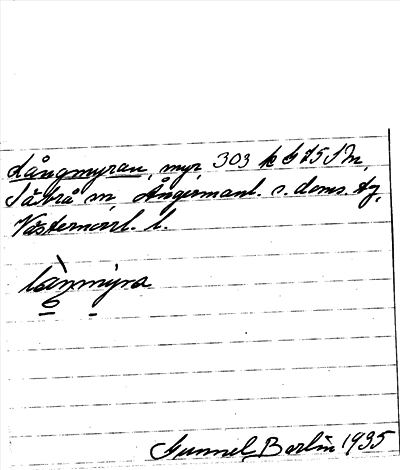 Långmyran, myr, 303 k 6 75 S m,
Säbrå sn, Ångermanl. s. doms. tg,
Västernorrl. l.
làŋmýra
Gunnel Berlin 1935